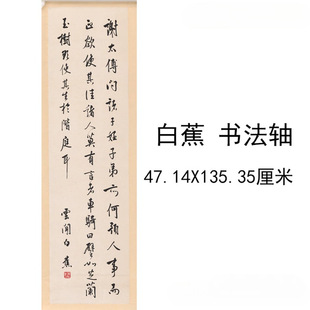 謝太傅問諸子姪子弟亦何預人事而
正欲使其佳諸人莫有言者車騎曰譬如芝蘭
玉樹欲使其生於階庭耳
雲間白蕉
白蕉 书法轴
47.14X135.35厘米